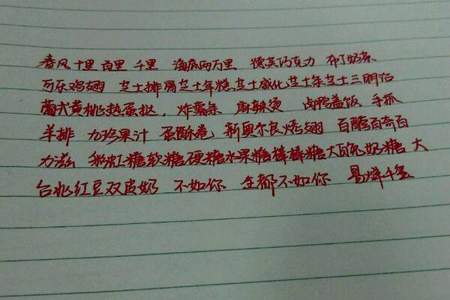 春风十里 百里 千里 海底两万里 德芙巧克力 布丁奶茶
可乐鸡翅 芝士排骨芝士年糕芝士威化芝士条芝士三明治
葡式黄桃热蛋挞，炸薯条 麻辣烫 卤鸭盖饭 手抓
羊排 力多果汁 蛋酥卷 新奥尔良烤翅 百醇百奇百
力滋 粉红糖软糖硬糖水果糖棒棒糖大白兔奶糖 大
台北红豆双皮奶 不如你 全都不如你 易烊千玺